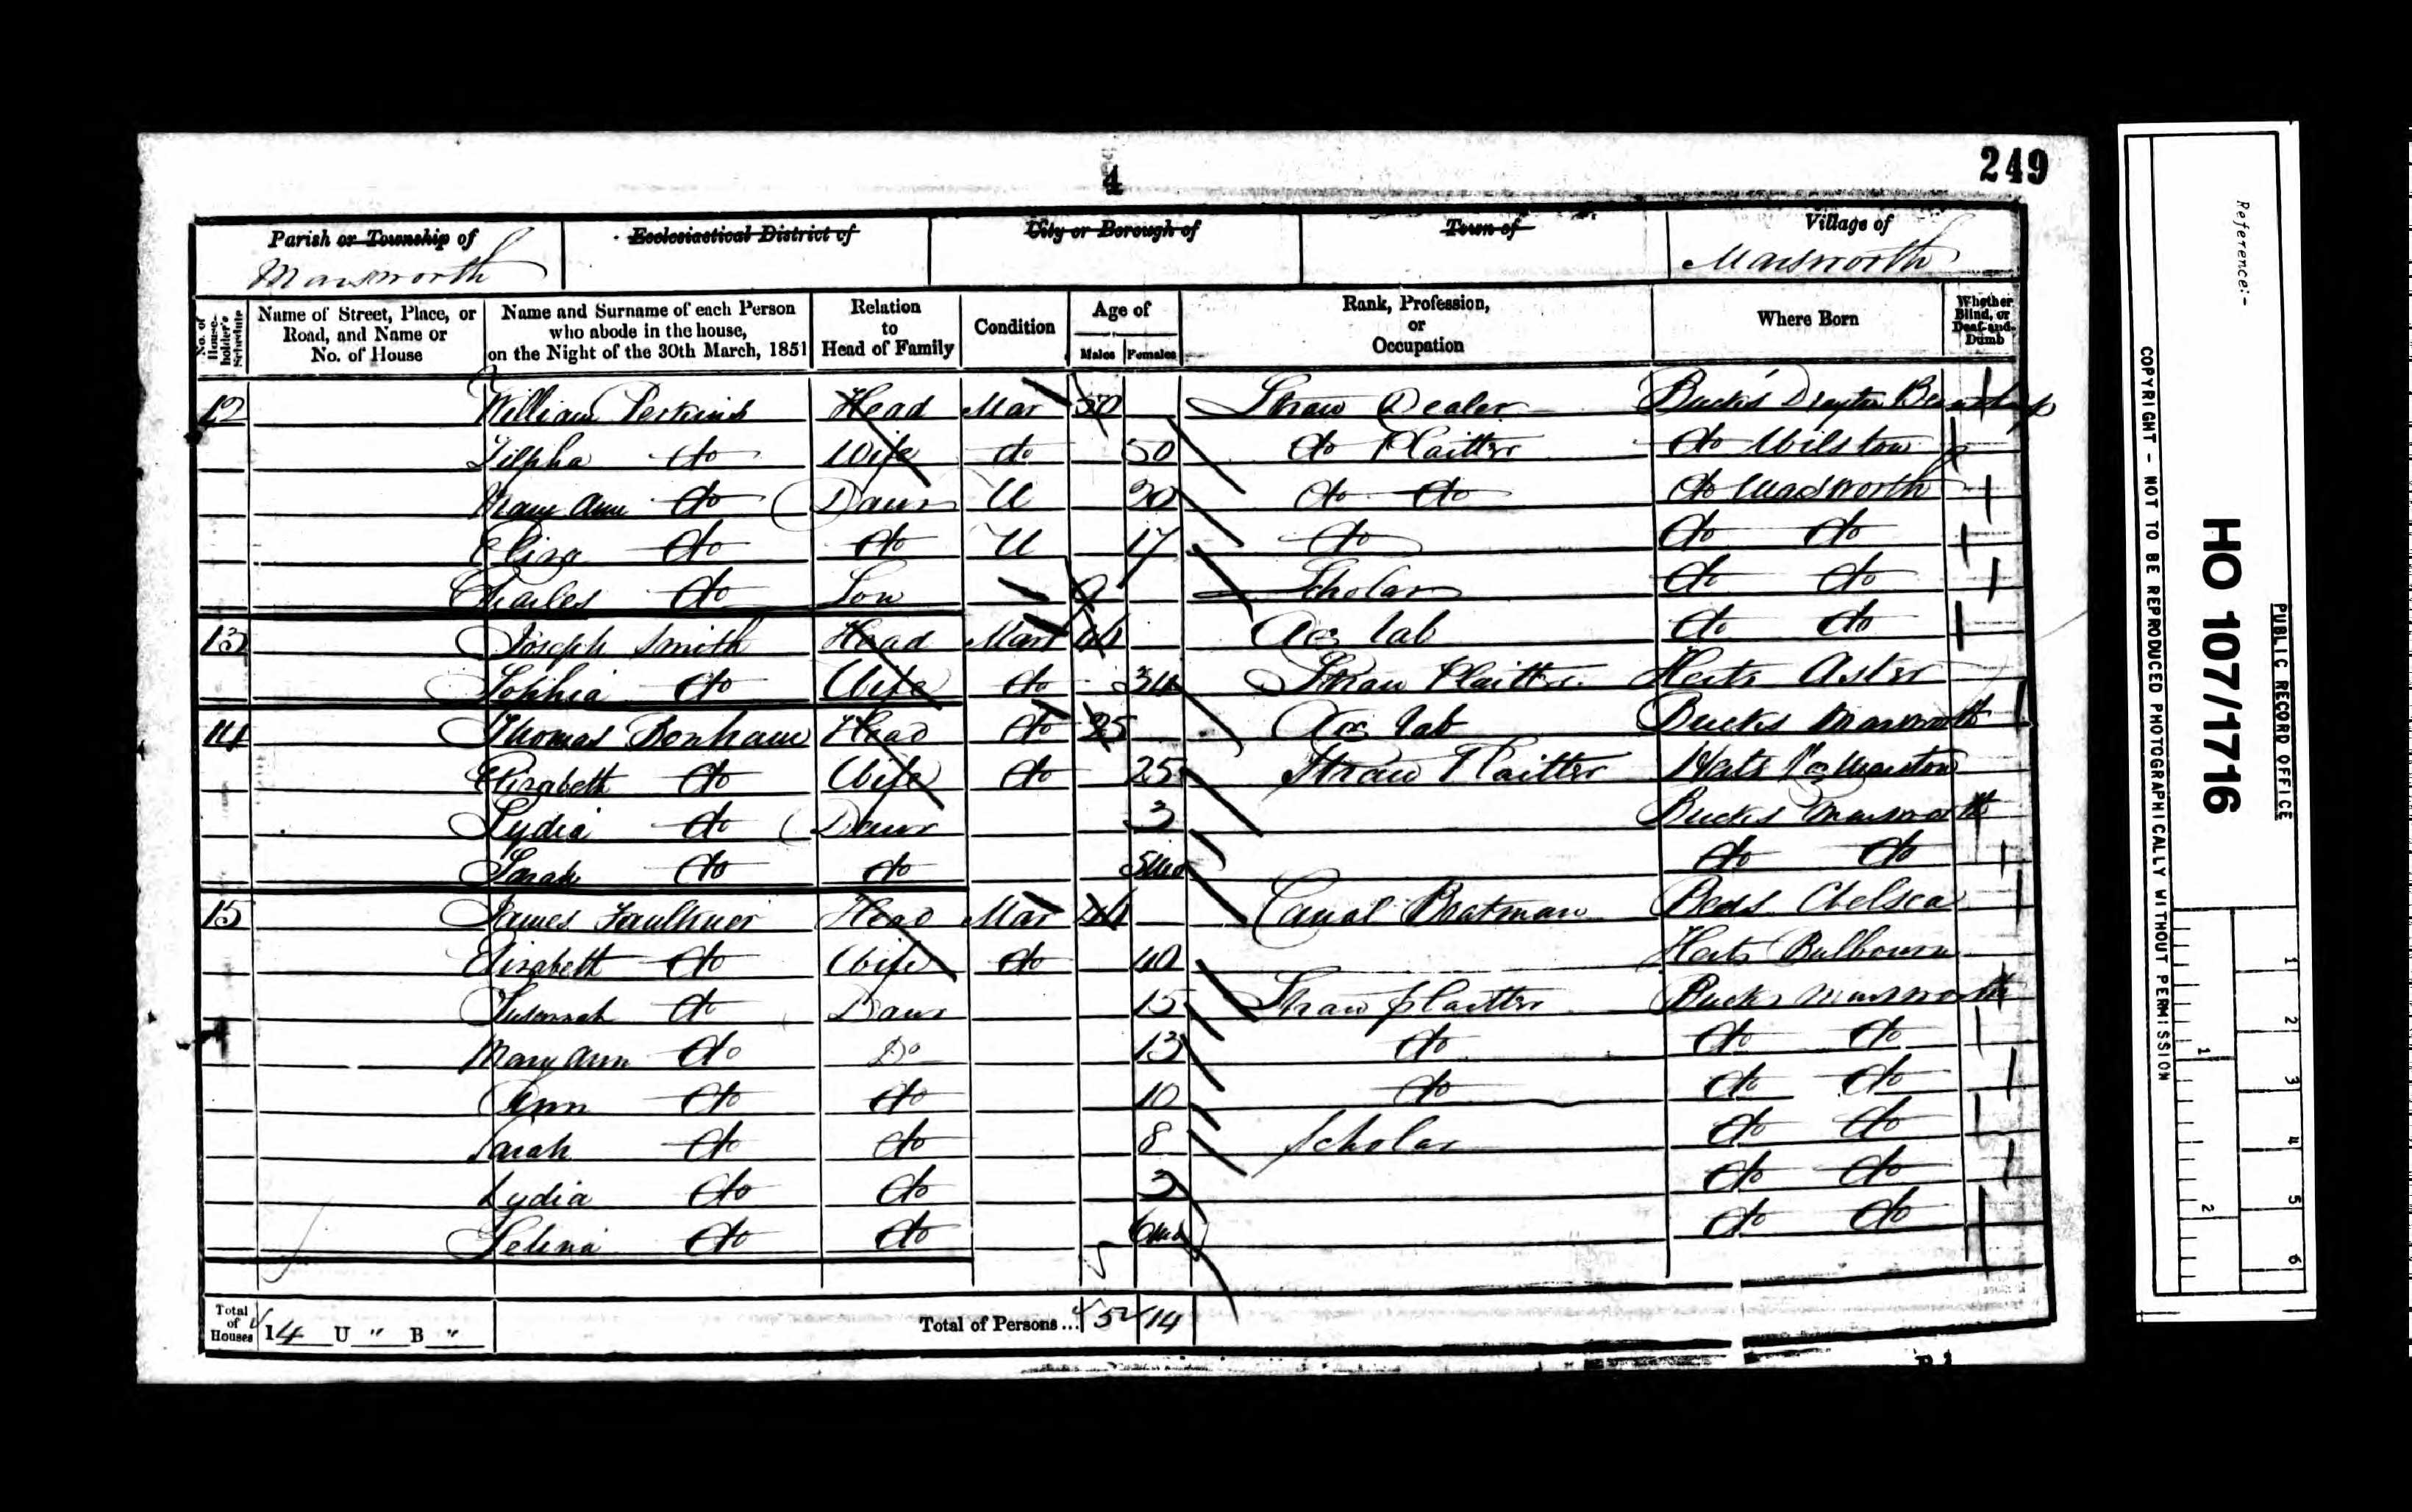 4
249
Parish or Township of
Marsworth
Ecclesiastical District of
City or Borough of
Town of
Village of
Marsworth
No. of House-holder's Schedule
Name of Street, Place, or Road, and Name or No. of House
Name and Surname of each Person who abode in the house, on the Night of the 30th March, 1851
Relation to Head of Family
Condition
Age of
Males Females
Rank, Profession, or Occupation
Where Born
Whether Blind, or Deaf-and-Dumb
12 William Perkins Head Mar 50 Straw Dealer Bucks Drayton Beauchamp
Zilpha do Wife do 50 do Plaitter do Wilston
Mary Ann do Daur U 20 do do do Marsworth
Eliza do do U 17 do do do
Charles do Son 9 Scholar do do
13 Joseph Smith Head Mar 44 Ag lab do do
Sophia do Wife do 34 Straw Plaitter Herts
14 Thomas Benham Head do 25 Ag lab Bucks Marsworth
Elizabeth do Wife do 25 Straw Plaitter Herts
Lydia do Daur 3 Bucks Marsworth
Sarah do do 5mo do do
15 James Faulkner Head Mar 44 Canal Boatman Beds Chelsea
Elizabeth do Wife do 40 Herts Bulbourn
Susannah do Daur 15 Straw plaitter Bucks Marsworth
Mary Ann do Do 13 do do do
Ann do do 10 do do do
Sarah do do 8 Scholar do do
Lydia do do 3 do do
Selina do do 6mo do do
Total of Houses 14 U " B " Total of Persons... 5 14
Reference:-
PUBLIC RECORD OFFICE
HO 107/1716
COPYRIGHT - NOT TO BE REPRODUCED PHOTOGRAPHICALLY WITHOUT PERMISSION
1 2 3 4 5 6
1 2